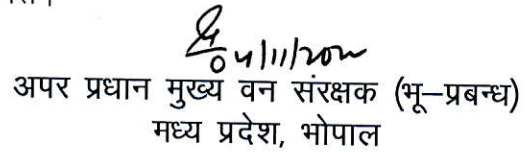 04/11/2020
अपर प्रधान मुख्य वन संरक्षक (भू–प्रबन्ध)
मध्य प्रदेश, भोपाल